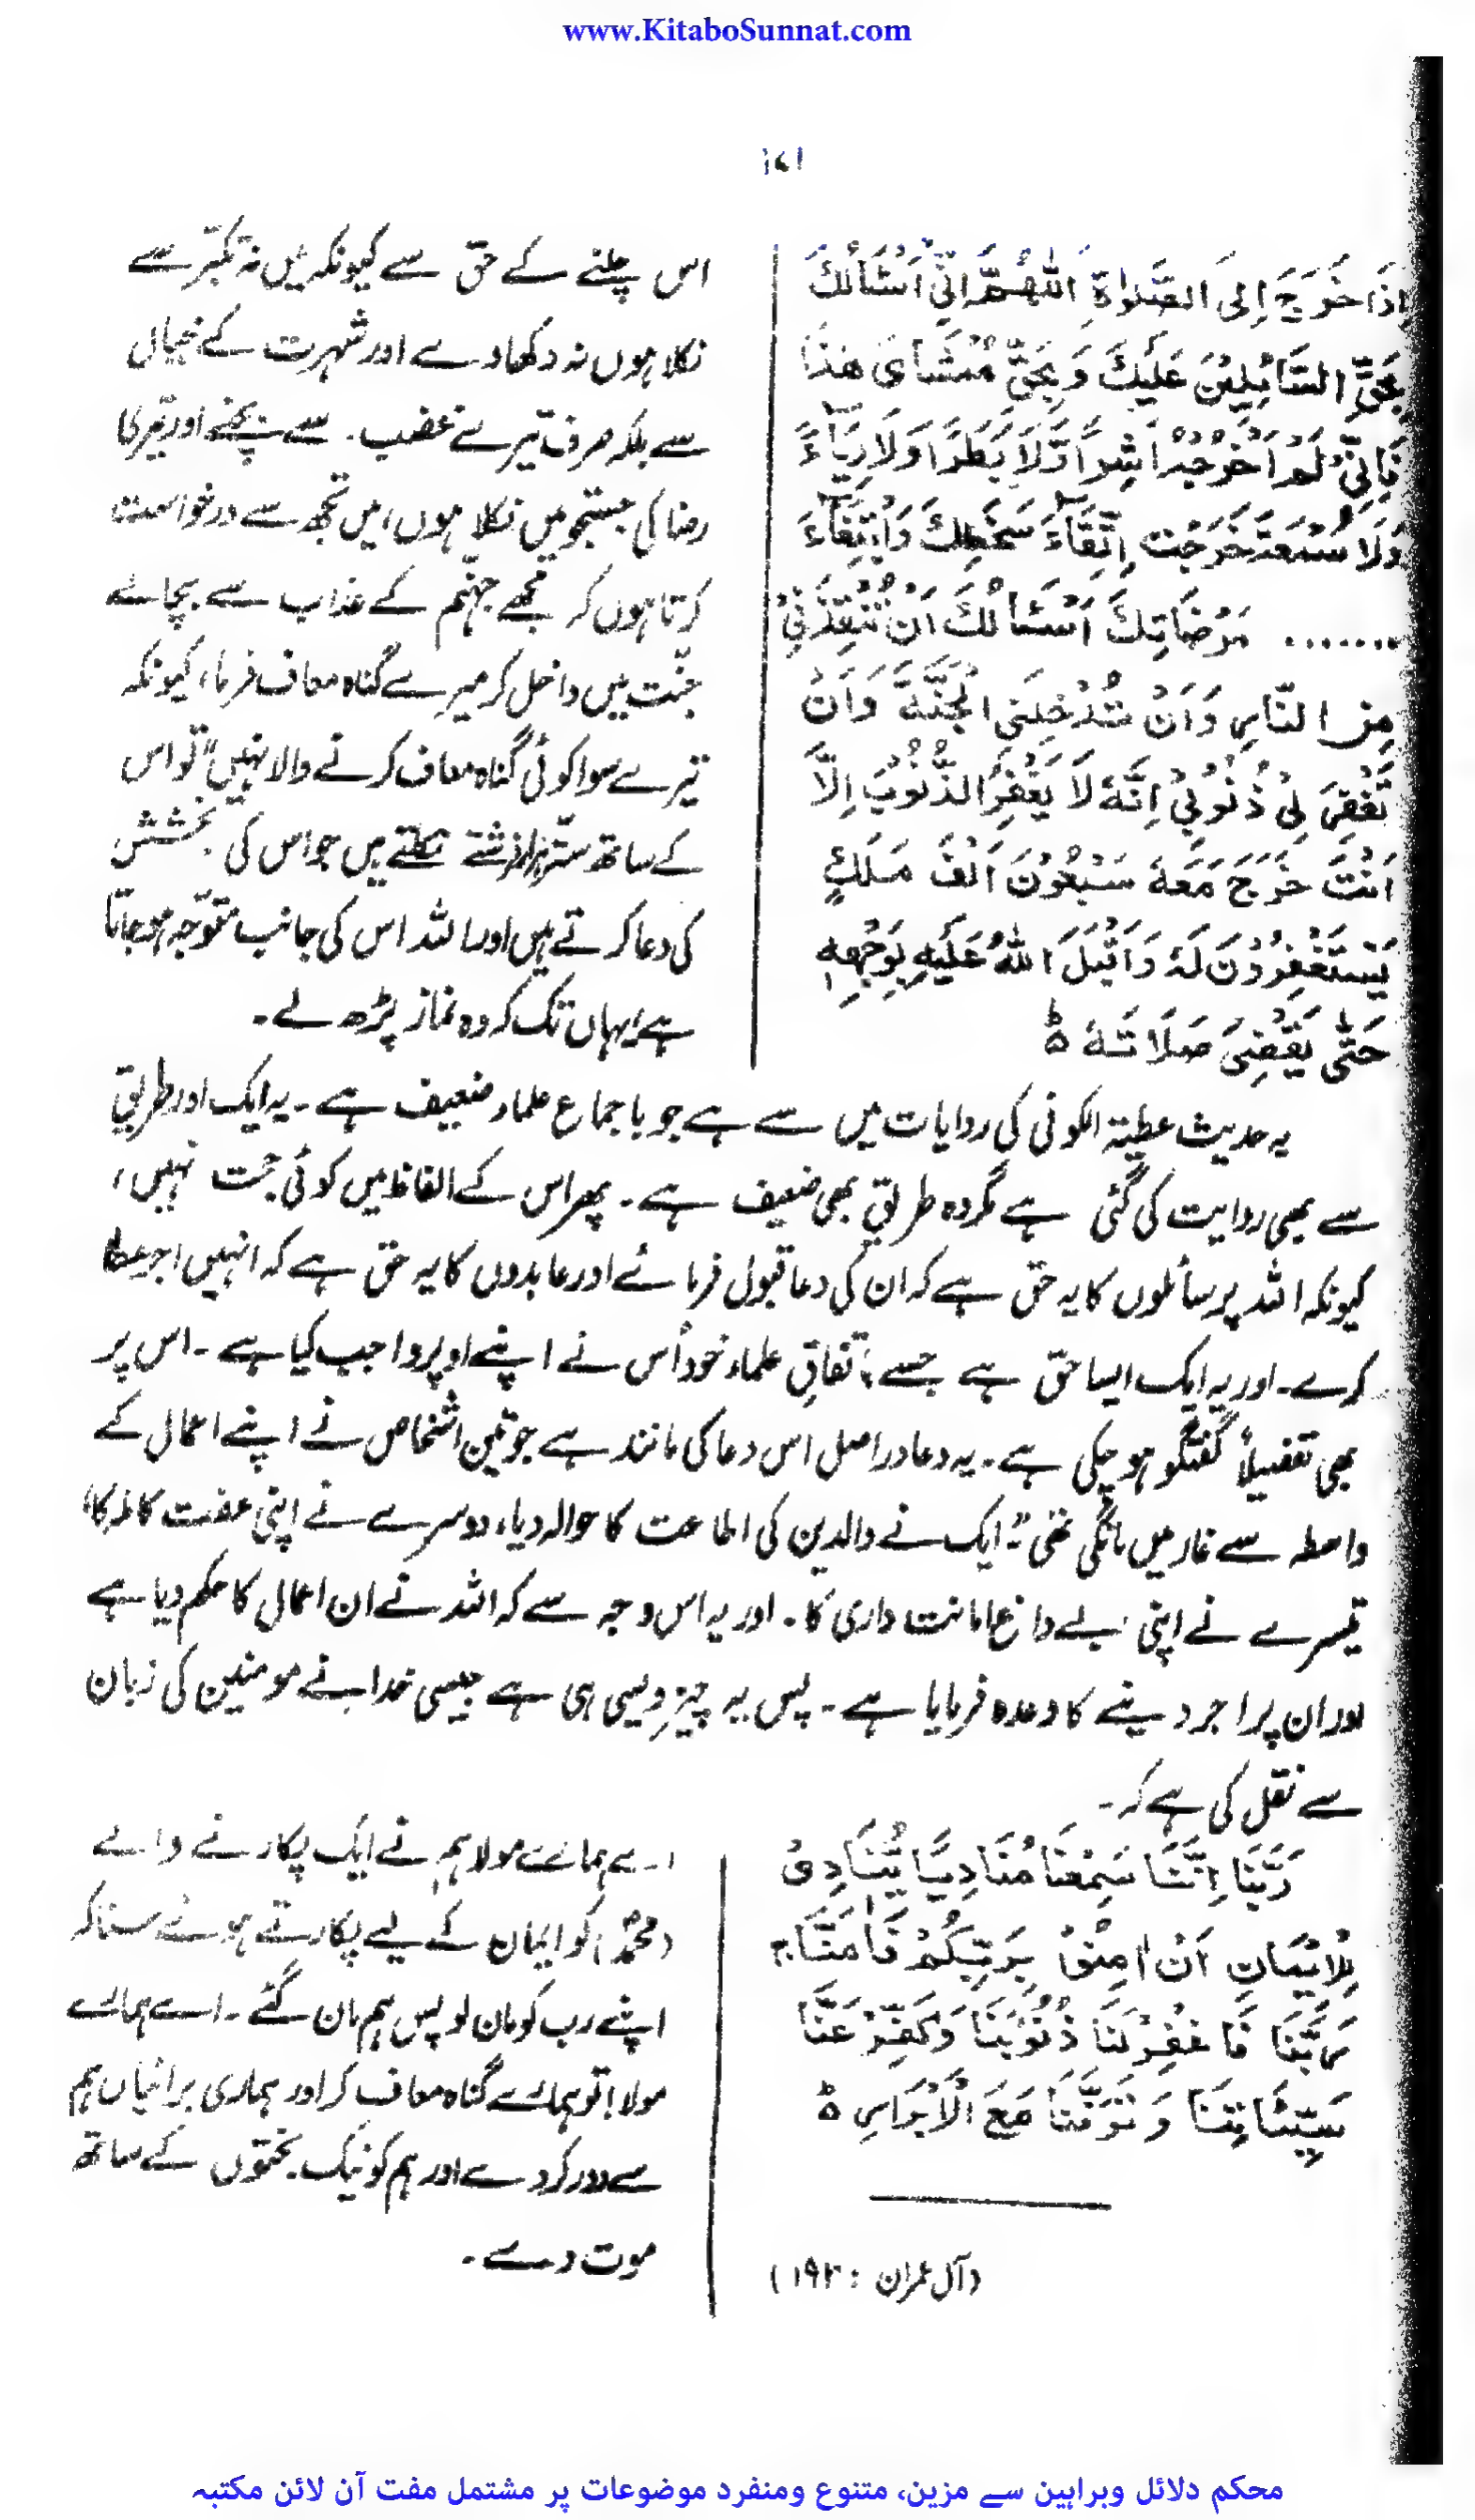 www.KitaboSunnat.com
۱۷۱
إِذَا خَرَجَ إِلَى الصَّلوٰةِ اَللّٰهُمَّ اِنِّیْ اَسْئَأَلُكَ
بِحَقِّ السَّآئِلِيْنَ عَلَيْكَ وَبِحَقِّ مَمْشَایَ هٰذَا
فَاِنِّیْ لَمْ اَخْرُجْهُ اَشِرًا وَّلَا بَطَرًا وَلَا رِيَآءً
وَلَا سُمْعَةً خَرَجْتُ اِتِّقَآءَ سَخَطِكَ وَابْتِغَآءَ
....... مَرْضَاتِكَ اَسْئَأَلُكَ اَنْ تُنْقِذَنِیْ
مِنَ النَّارِ وَاَنْ تُدْخِلَنِی الْجَنَّةَ وَاَنْ
تَغْفِرَ لِیْ ذُنُوْبِیْ اِنَّهٗ لَا يَغْفِرُ الذُّنُوْبَ اِلَّا
اَنْتَ خَرَجَ مَعَهٗ سَبْعُوْنَ اَلْفَ مَلَكٍ
يَّسْتَغْفِرُوْنَ لَهٗ وَاَقْبَلَ اللّٰهُ عَلَيْهِ بِوَجْهِهٖ
حَتّٰی يَقْضِیَ صَلَاتَهٗ ط
اس چلنے کے حق سے کیونکہ میں نہ تکبّر سے
نکلا ہوں نہ دکھاوے اور شہرت کے خیال
سے بلکہ صرف تیرے غضب۔ سے بچنے اور تیری
رضا کی جستجو میں نکلا ہوں، میں تجھ سے درخواست
کرتا ہوں کہ مجھے جہنّم کے عذاب سے بچائے
جنّت میں داخل کر میرے گناہ معاف فرما، کیونکہ
تیرے سوا کوئی گناہ معاف کرنے والا نہیں" تو اس
کے ساتھ ستّر ہزار فرشتے نکلتے ہیں جو اس کی بخشش
کی دعا کرتے ہیں اور اللہ اس کی جانب متوّجہ ہو جاتا
ہے، یہاں تک کہ وہ نماز پڑھ لے۔
یہ حدیث عطیتہ الکوفی کی روایات میں سے ہے جو باجماع علماء ضعیف ہے۔ یہ ایک اور طریق
سے بھی روایت کی گئی ہے مگر وہ طریق بھی ضعیف ہے۔ پھر اس کے الفاظ میں کوئی حجت نہیں،
کیونکہ اللہ پر سائلوں کا یہ حق ہے کہ ان کی دعا قبول فرمائے اور عابدوں کا یہ حق ہے کہ انہیں اجر عطا
کرے۔ اور یہ ایک ایسا حقّ ہے جسے باتفاقِ علماء خود اُس نے اپنے اوپر واجب کیا ہے۔ اس پر
بھی تفصیلاً گفتگو ہو چکی ہے۔ یہ دعا دراصل اس دعا کی مانند ہے جو تین اشخاص نے اپنے اعمال کے
واسطہ سے غار میں مانگی تھی: ایک نے والدین کی اطاعت کا حوالہ دیا، دوسرے نے اپنی عفت کاملہ کا،
تیسرے نے اپنی بے داغ امانت داری کا۔ اور یہ اس وجہ سے کہ اللہ نے ان اعمال کا حکم دیا ہے
اور ان پر اجر دینے کا وعدہ فرمایا ہے۔ پس یہ چیز ویسی ہی ہے جیسی خدا نے مومنین کی زبان
سے نقل کی ہے کہ۔
رَبَّنَا اِنَّنَا سَمِعْنَا مُنَادِيًا يُّنَادِیْ
لِلْاِيْمَانِ اَنْ اٰمِنُوْا بِرَبِّكُمْ فَاٰمَنَّا ج
رَبَّنَا فَاغْفِرْ لَنَا ذُنُوْبَنَا وَكَفِّرْ عَنَّا
سَيِّئَاتِنَا وَتَوَفَّنَا مَعَ الْاَبْرَارِ ط
(آل عمران : ۱۹۳)
اے ہمارے مولا ہم نے ایک پکارنے والے
(محمدؐ) کو ایمان کے لیے پکارتے ہوئے سنا کہ
اپنے رب کو مان لو پس ہم مان گئے۔ اے ہمارے
مولا! تو ہمارے گناہ معاف کر اور ہماری برائیاں ہم
سے دور کر دے اور ہم کو نیک بختوں کے ساتھ
موت دے۔
محکم دلائل وبراہین سے مزین، متنوع ومنفرد موضوعات پر مشتمل مفت آن لائن مکتبہ